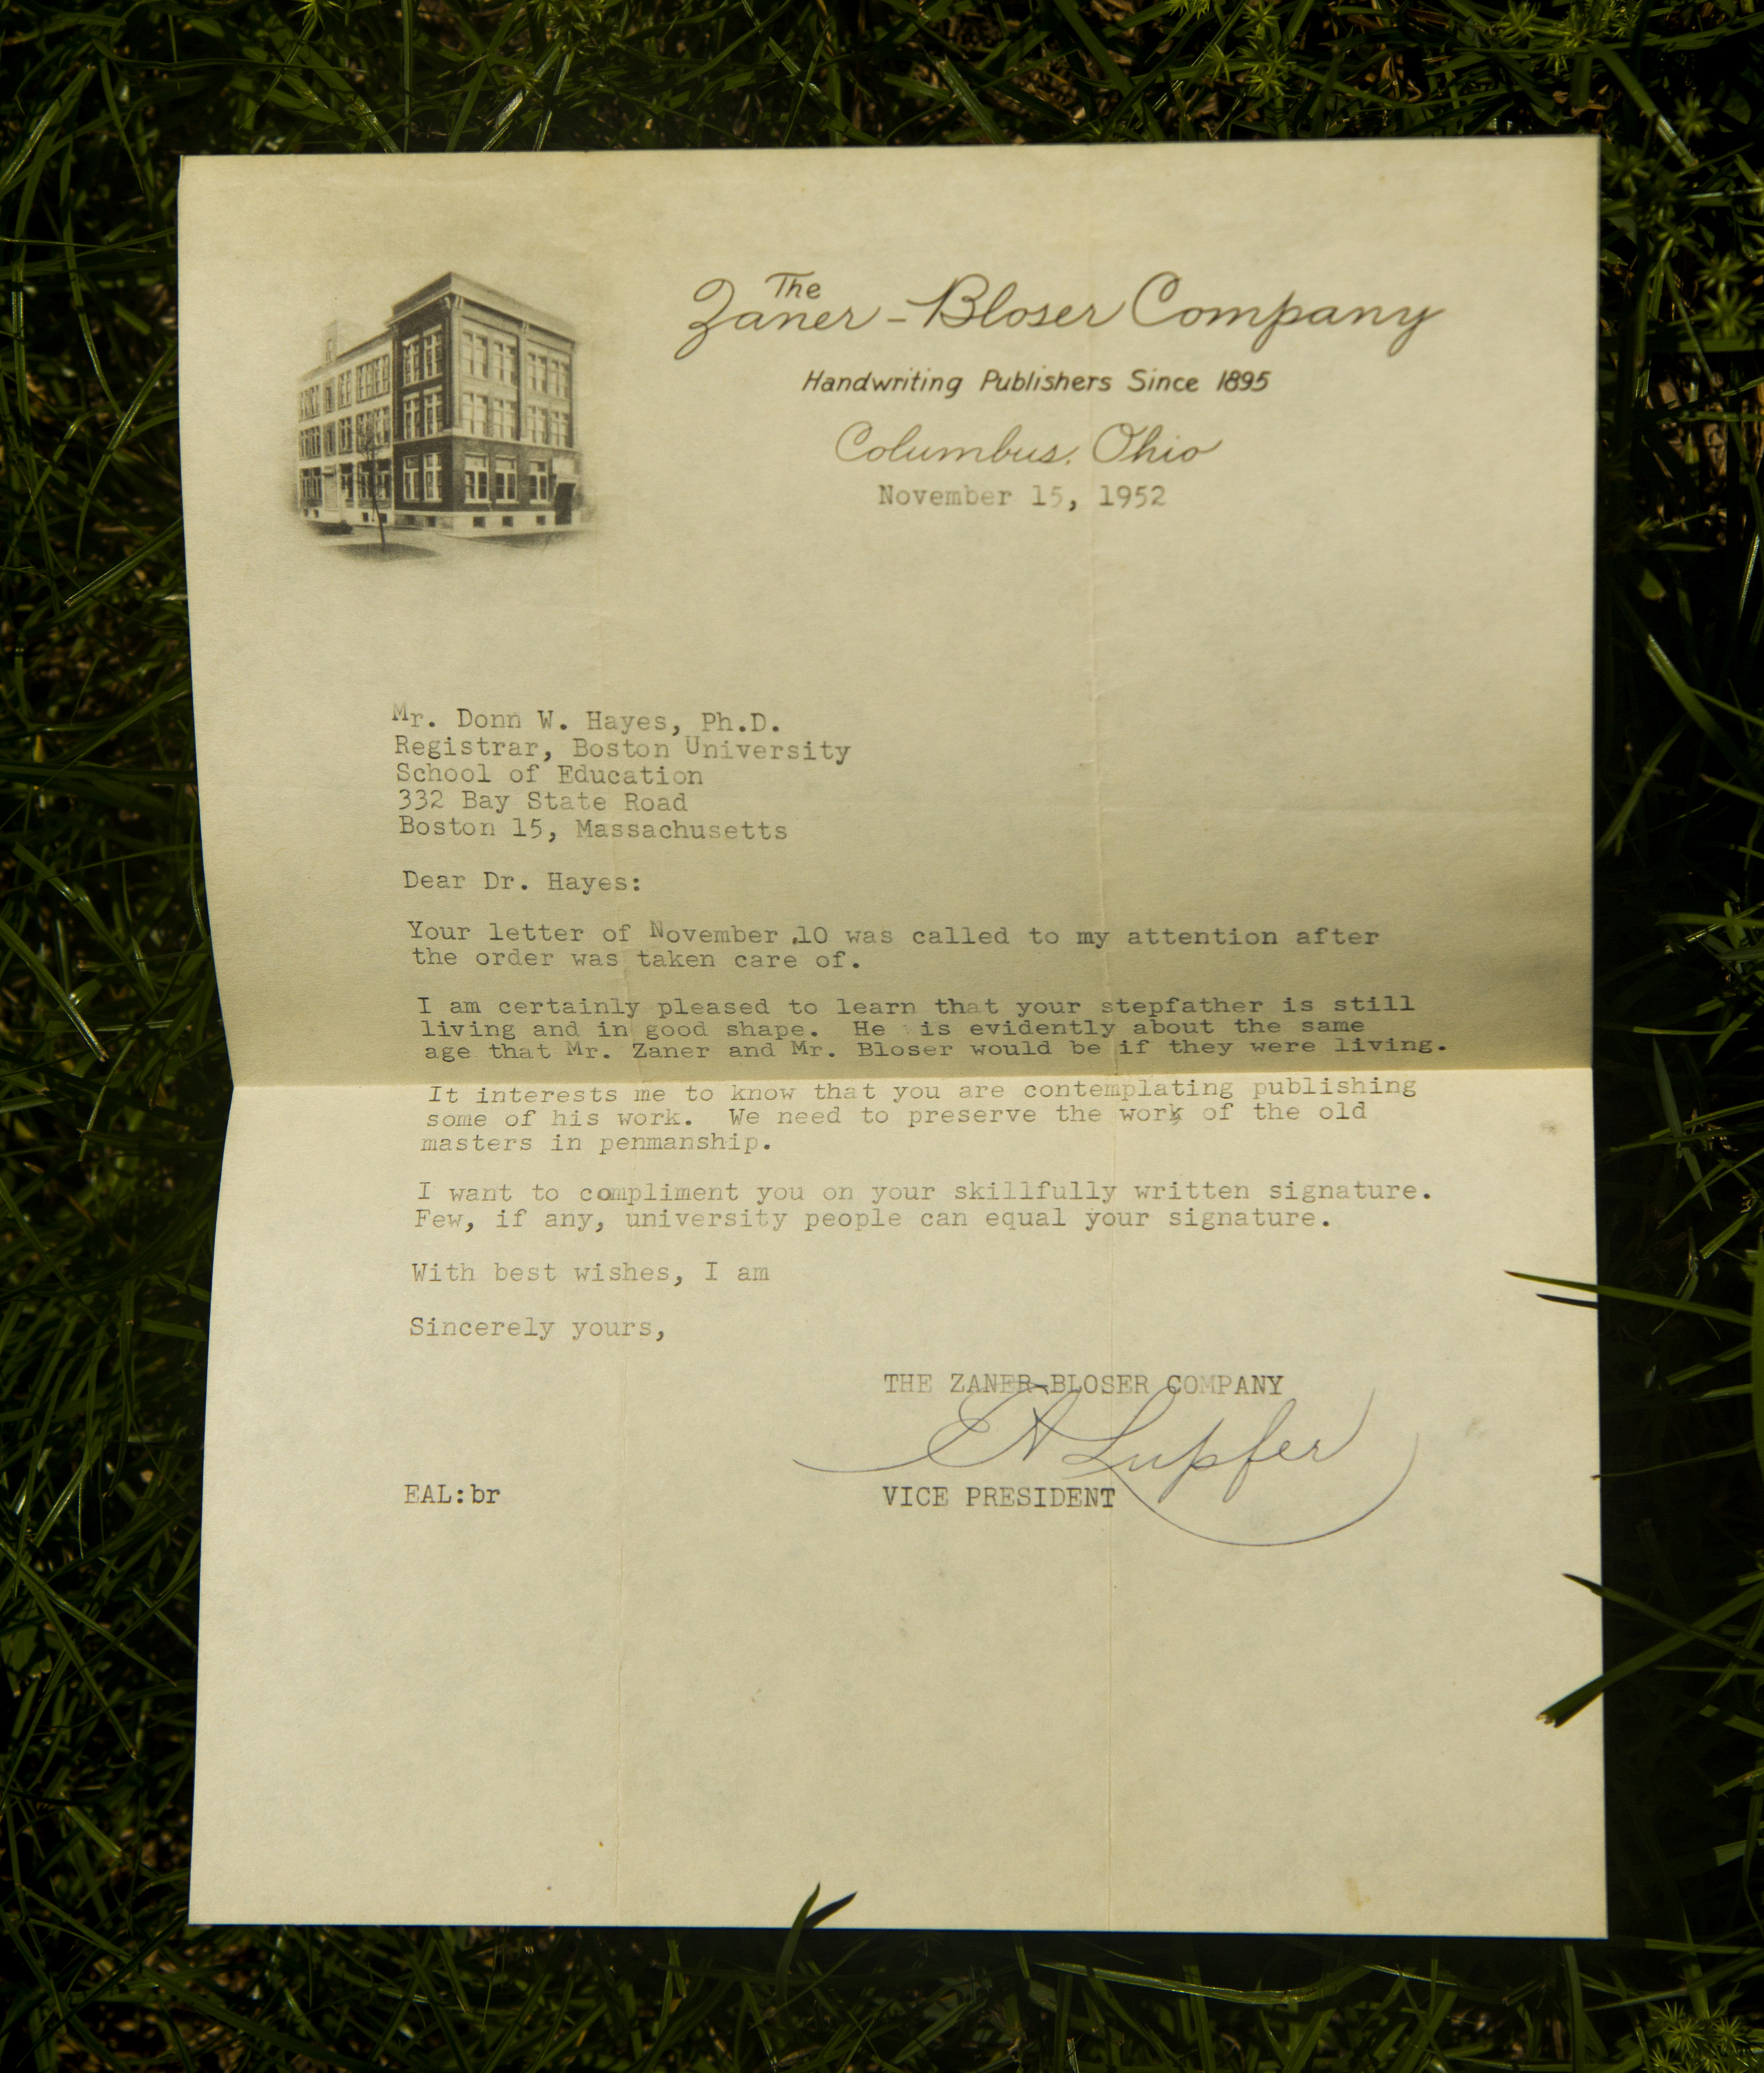 The
Zaner-Bloser Company
Handwriting Publishers Since 1895
Columbus, Ohio
November 15, 1952
Mr. Donn W. Hayes, Ph.D.
Registrar, Boston University
School of Education
332 Bay State Road
Boston 15, Massachusetts
Dear Dr. Hayes:
Your letter of November 10 was called to my attention after
the order was taken care of.
I am certainly pleased to learn that your stepfather is still
living and in good shape. He is evidently about the same
age that Mr. Zaner and Mr. Bloser would be if they were living.
It interests me to know that you are contemplating publishing
some of his work. We need to preserve the work of the old
masters in penmanship.
I want to compliment you on your skillfully written signature.
Few, if any, university people can equal your signature.
With best wishes, I am
Sincerely yours,
THE ZANER-BLOSER COMPANY
EA Lupfer
EAL:br VICE PRESIDENT